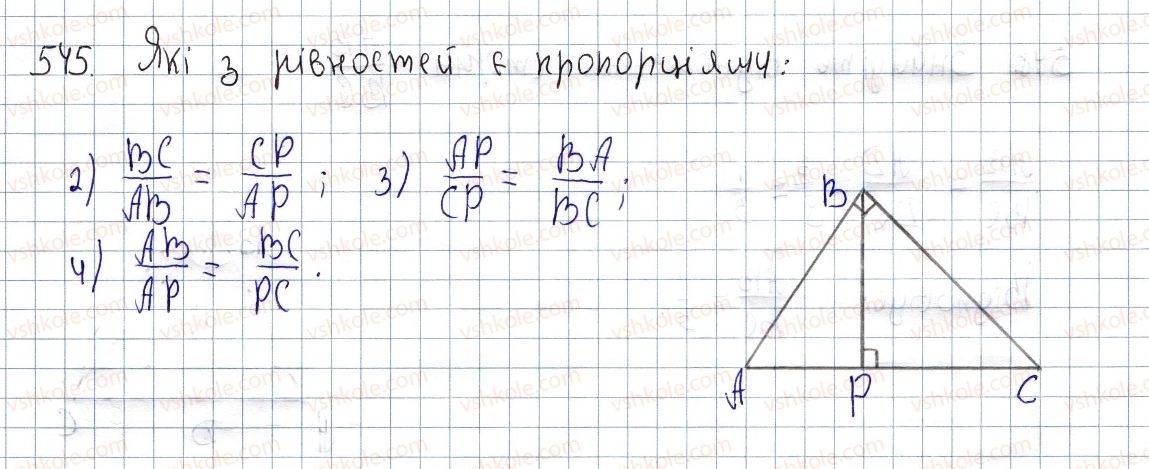 545. Які з рівностей є пропорціями:
2) BC/AB = CP/AP ; 3) AP/CP = BA/BC ;
4) AB/AP = BC/PC .
B
A P C